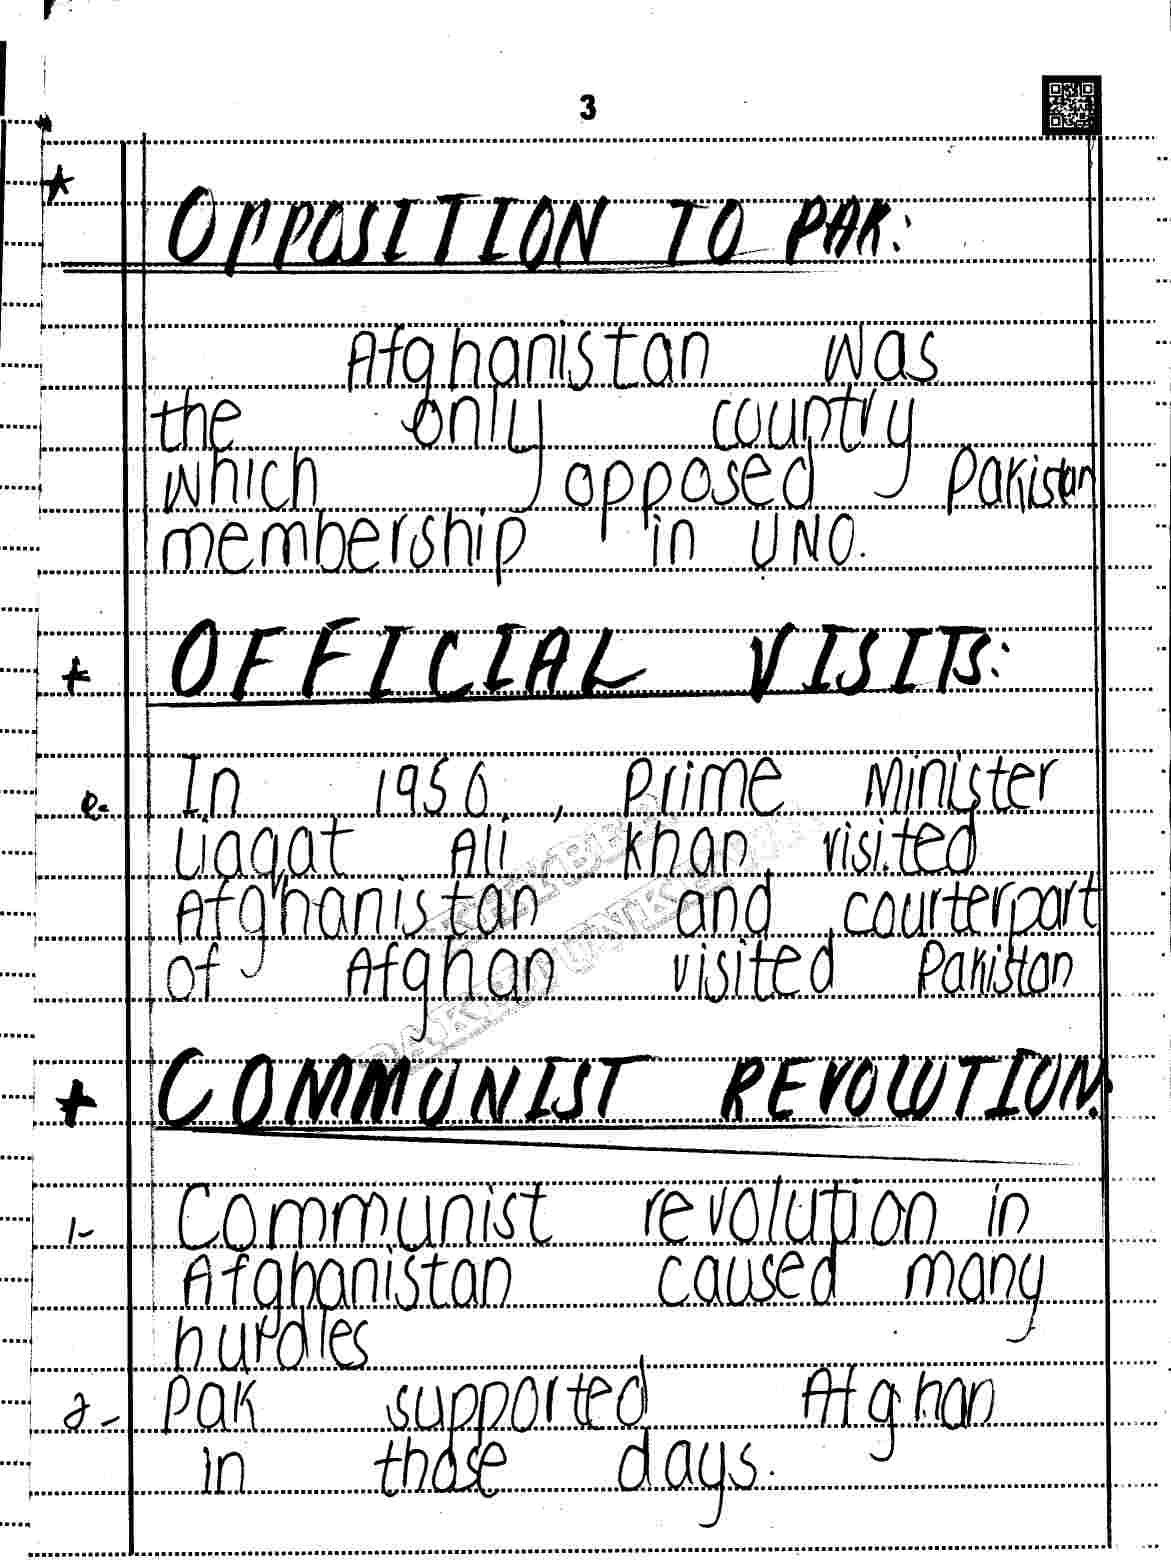 3
OPPOSITION TO PAK:
Afghanistan was
the only country
which opposed Pakistan
membership in UNO.
OFFICIAL VISITS:
In 1950, Prime Minister
Liaqat Ali khan visited
Afghanistan and counterpart
of Afghan visited Pakistan
COMMUNIST REVOLUTION:
1- Communist revolution in
Afghanistan caused many
hurdles
2- Pak supported Afghan
in those days.